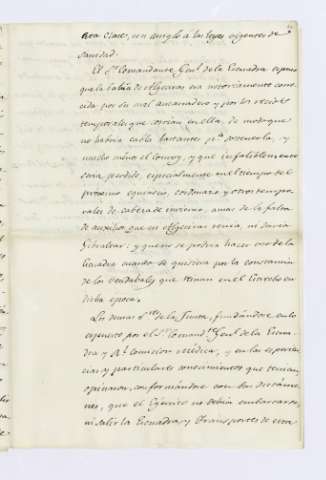 otra clase, con arreglo a las leyes vigentes de
Sanidad.
El Sr. Comandante Genl. de la Escuadra expuso
que la bahia de Algeciras era notoriamente cono-
cida por su mal ancoradero y por los recios
temporales que corrian en ella, de modo que
no habria cabla bastante pa. contenerla, y
mucho menos el Comvoy, y que infaliblemente
seria perdido, especialmente en el tiempo del
proximo equinocio, cordonazo y otros tempo-
rales de cabeza de invierno, amas de la falta
de auxilios que en Algeciras tenia, ni daria
Gibraltar; y que no se podria hacer uso de la
Escuadra cuando se quisiera por la constancia
de los bendabales que reinan en el Estrecho en
dicha epoca.
Los demas Ses. de la Junta, fundandose en lo
expuesto por el Sr. Comandte. Genl. de la Escua-
dra y Rl. Comision Médica, y en las experien-
cias y particulares conocimientos que tenian,
opinaron, conformándose con los dictáme-
nes, que el Egército no debia embarcarse,
ni salir la Escuadra y Transportes de esta